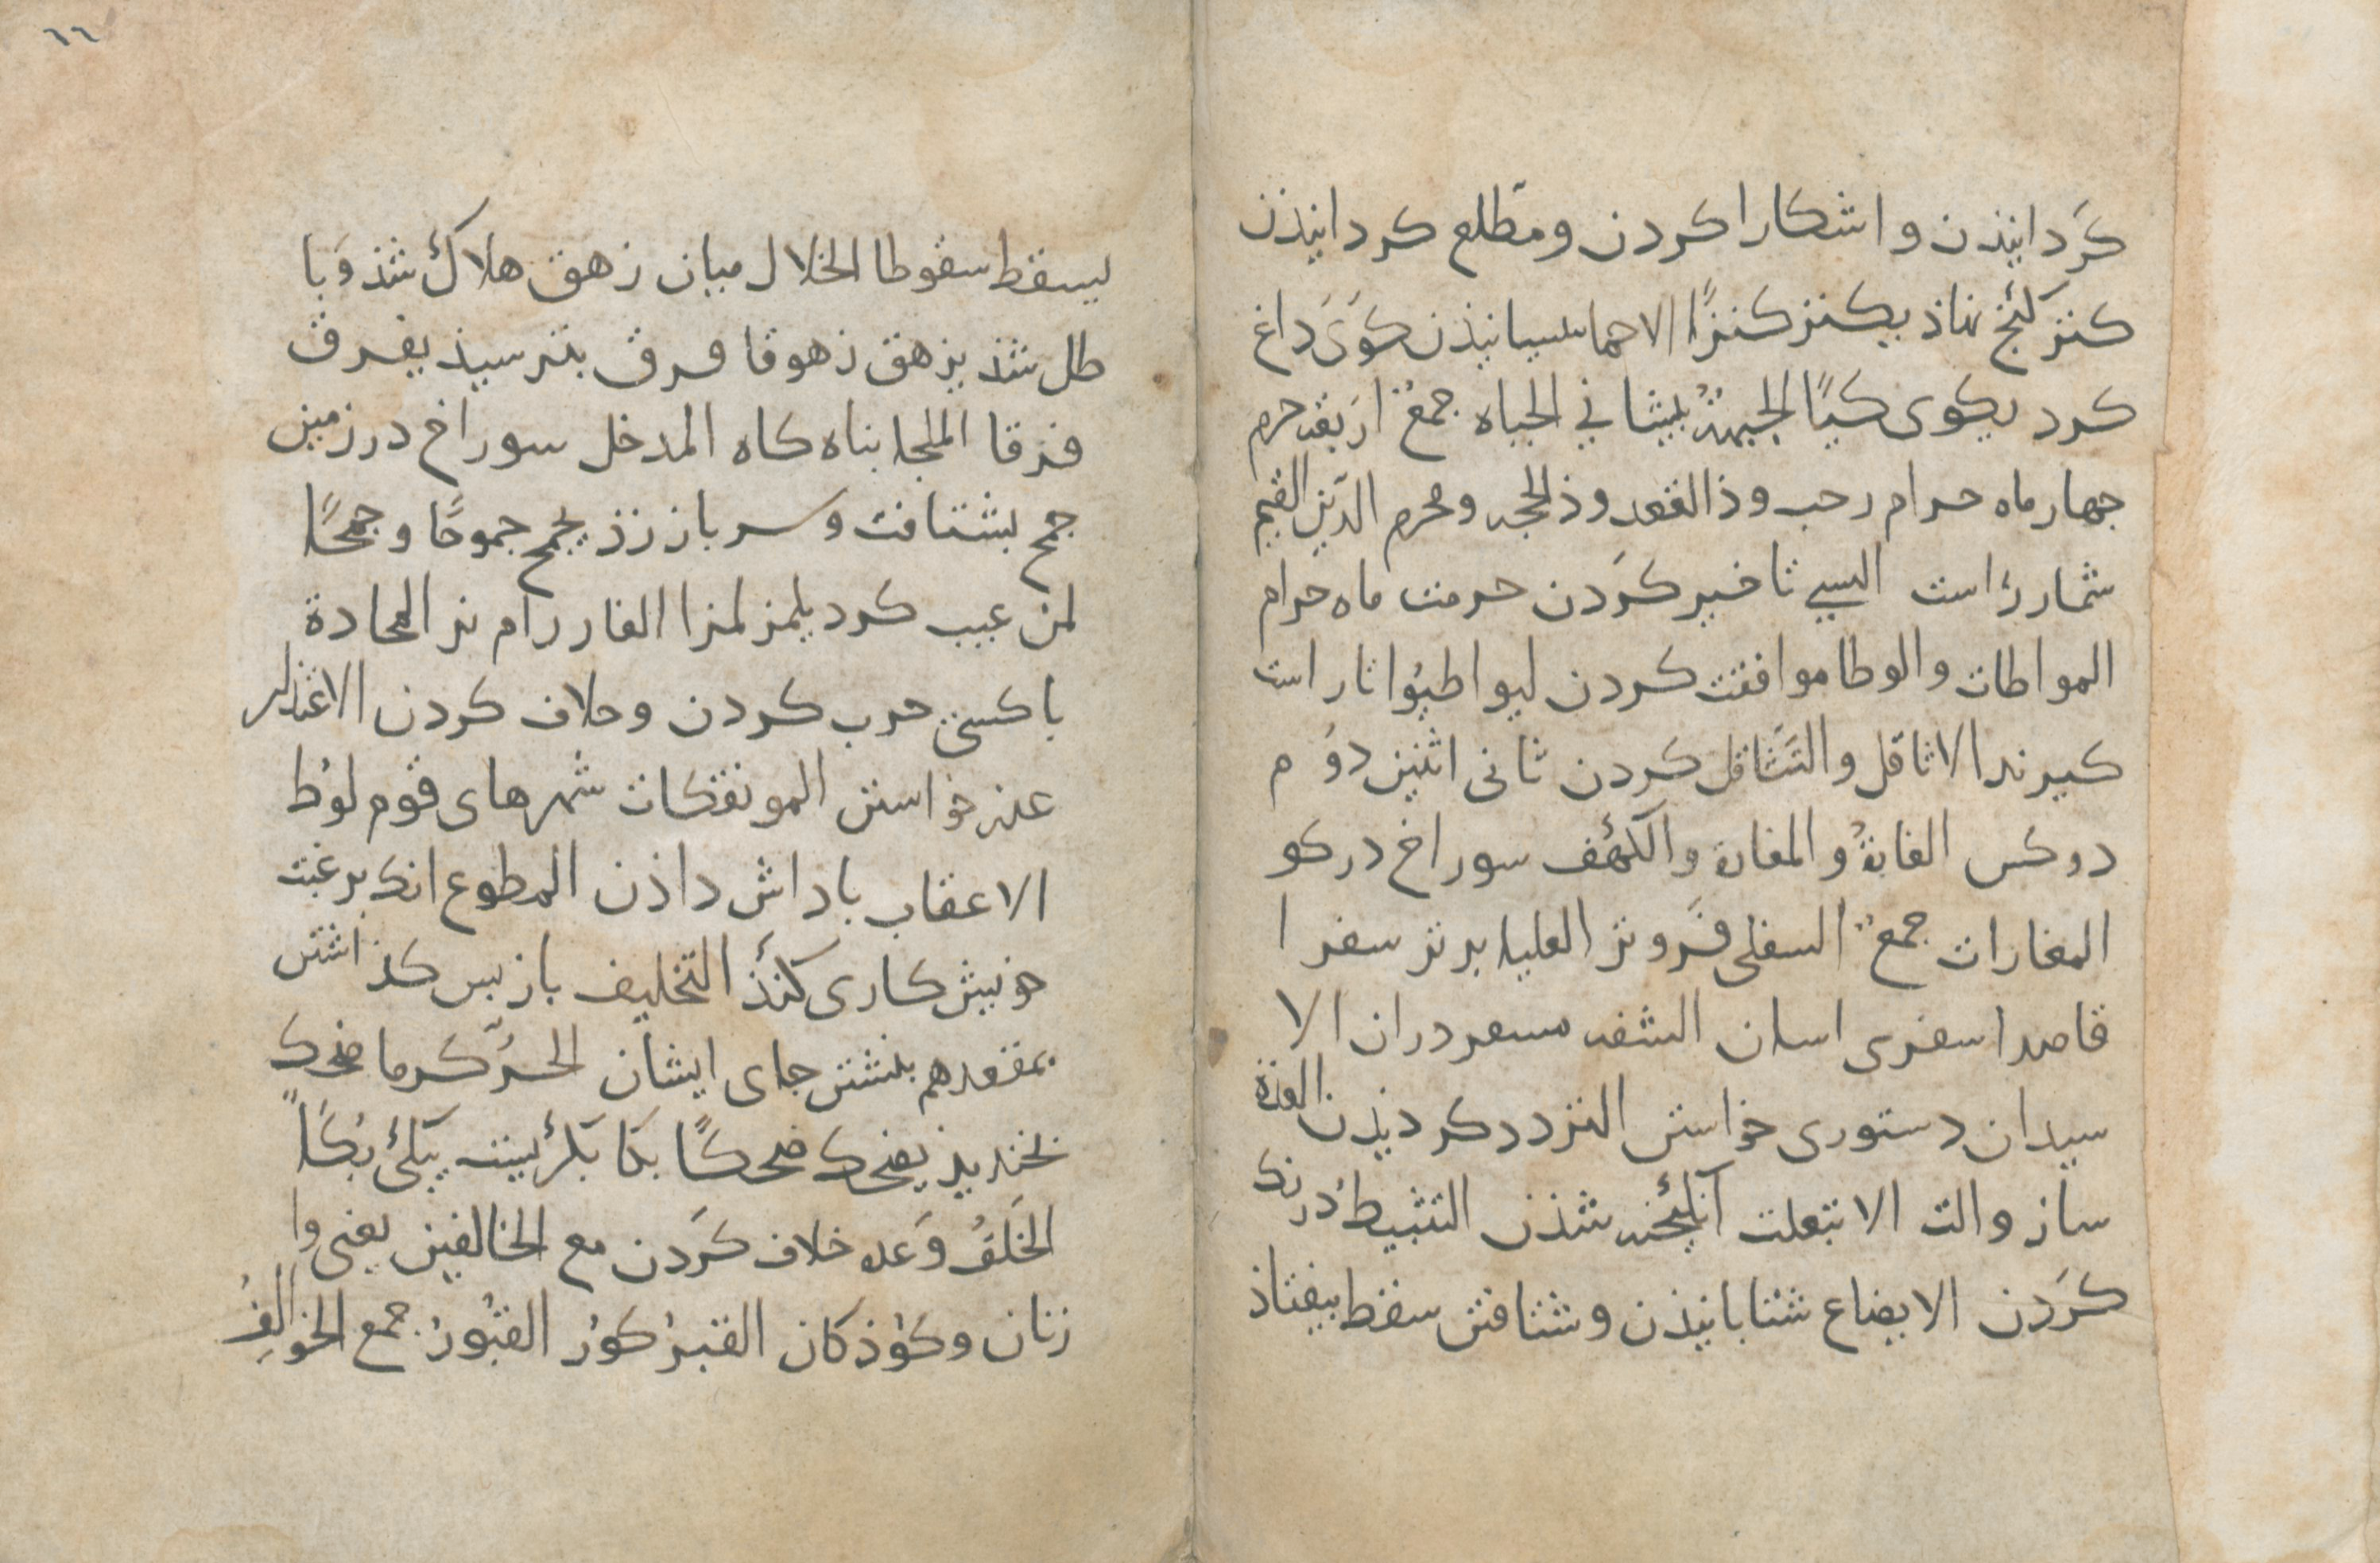 كَردانیذن و اشکارا کردن و مطّلع کردانیذن
کنز کنْج نهاذ یکنز کنزًا الاحما تسبانیذن کَوَیَ داغ
کرد یکوی کیًا الجبهةُ بیشانی الجباه جمعْ اربعه حرم
جهار ماه حرام رجب و ذالقعد و ذالحجه و محرم الدّین القیم
شمار راست النسی تاخیر کرَدن حرمت ماه حرام
المواطات والوطا موافقت کردن لیواطیُوا تا راست
کیرند الاثاقل والتَثاقل کردن ثانی اثنین دوُم
دو کس الغارةُ والمغارة والکهْف سوراخ در کو
المغارات جمعْ السفلی فَروتر العلیا برتر سفرا
قاصدا سفری اسان الشقه سفر دران الا
ستیدان دستوری خواستن التردد کردیذن العدة
ساز والت الانبعاث انکیْخته شذن التثبیط درنک
کرَدن الایضاع شتابانیذن و شتافتن سقط بیفتاذ
لیسقط سقوطا الخلال میان زهق هلاکْ شذ وَبا
طل شذ یزهق زهوقا فرق بترسیذ یفرق
فرقا الملجا بناه کاه المدخل سوراخ در زمین
جمح بشتافت و سر باز زذ یجمح جموحًا و جمحًا
لمز عیب کرد یلمز لمزا الغار رام نر المحادة
با کسی حرب کردن و خلاف کردن الاعتذار
عذر خواستن الموتفکات شهرهای قوم لوُط
الاعقاب باداش داذن المطوع انک برغبت
خویش کاری کنَذْ التخلیف باز بس کذاشتن
بمقعدهم بنشتن جای ایشان الحَرّ کرما ضحک
بخندیذ یضحک ضحکًا بکا بکرْیست یبکْی بُکَاً
الخَلفُ وَعده خلاف کرَدن مع الخالفین یعنی وا
زنان و کوْذکان القبرْ کوُر القبُورْ جمع الخوالفُ
٦٦